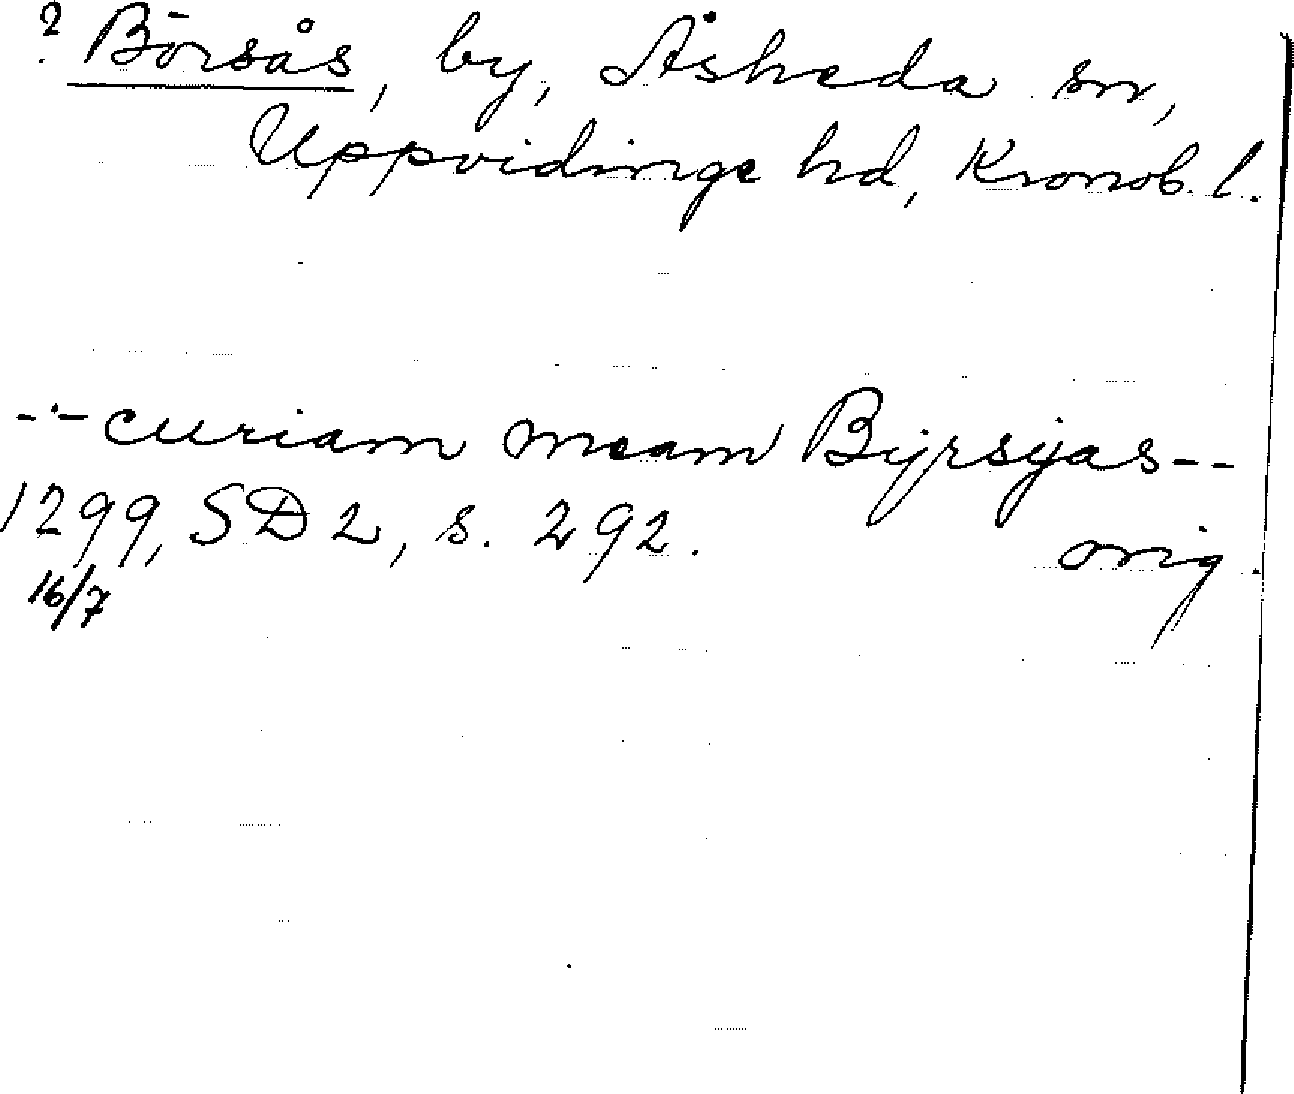 ? Börsås, by, Åsheda sn,
Uppvidinge hd, Kronob. l.
-·- curiam meam Byrsyas --
1299, SD 2, s. 292. orig.
16/7